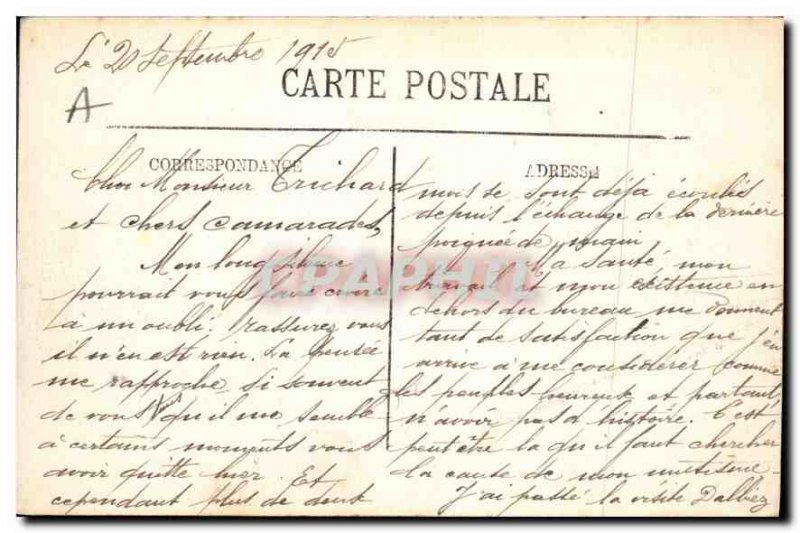 Le 20 Septembre 1915
A
CARTE POSTALE
CORRESPONDANCE
Cher Monsieur Trichard
et chers camarades,
Mon long silence
pourrait vous faire croire
à un oubli. Rassurez vous
il n'en est rien. La pensée
me rapproche si souvent
de vous tous qu'il me semble
à certains moments vous
avoir quitté hier. Et
cependant plus de deux
ADRESSE
mois se sont déjà écoulés
depuis l'échange de la dernière
poignée de main,
Ma santé, mon
travail et mon existence en
dehors du bureau me donnent
tant de satisfaction que j'en
arrive à me considérer comme
les peuples heureux et partant
n'avoir pas d'histoire. C'est
peut être la qu'il faut chercher
la cause de mon mutisme -
J'ai passé la visite Dalbiez
CPAPHIL